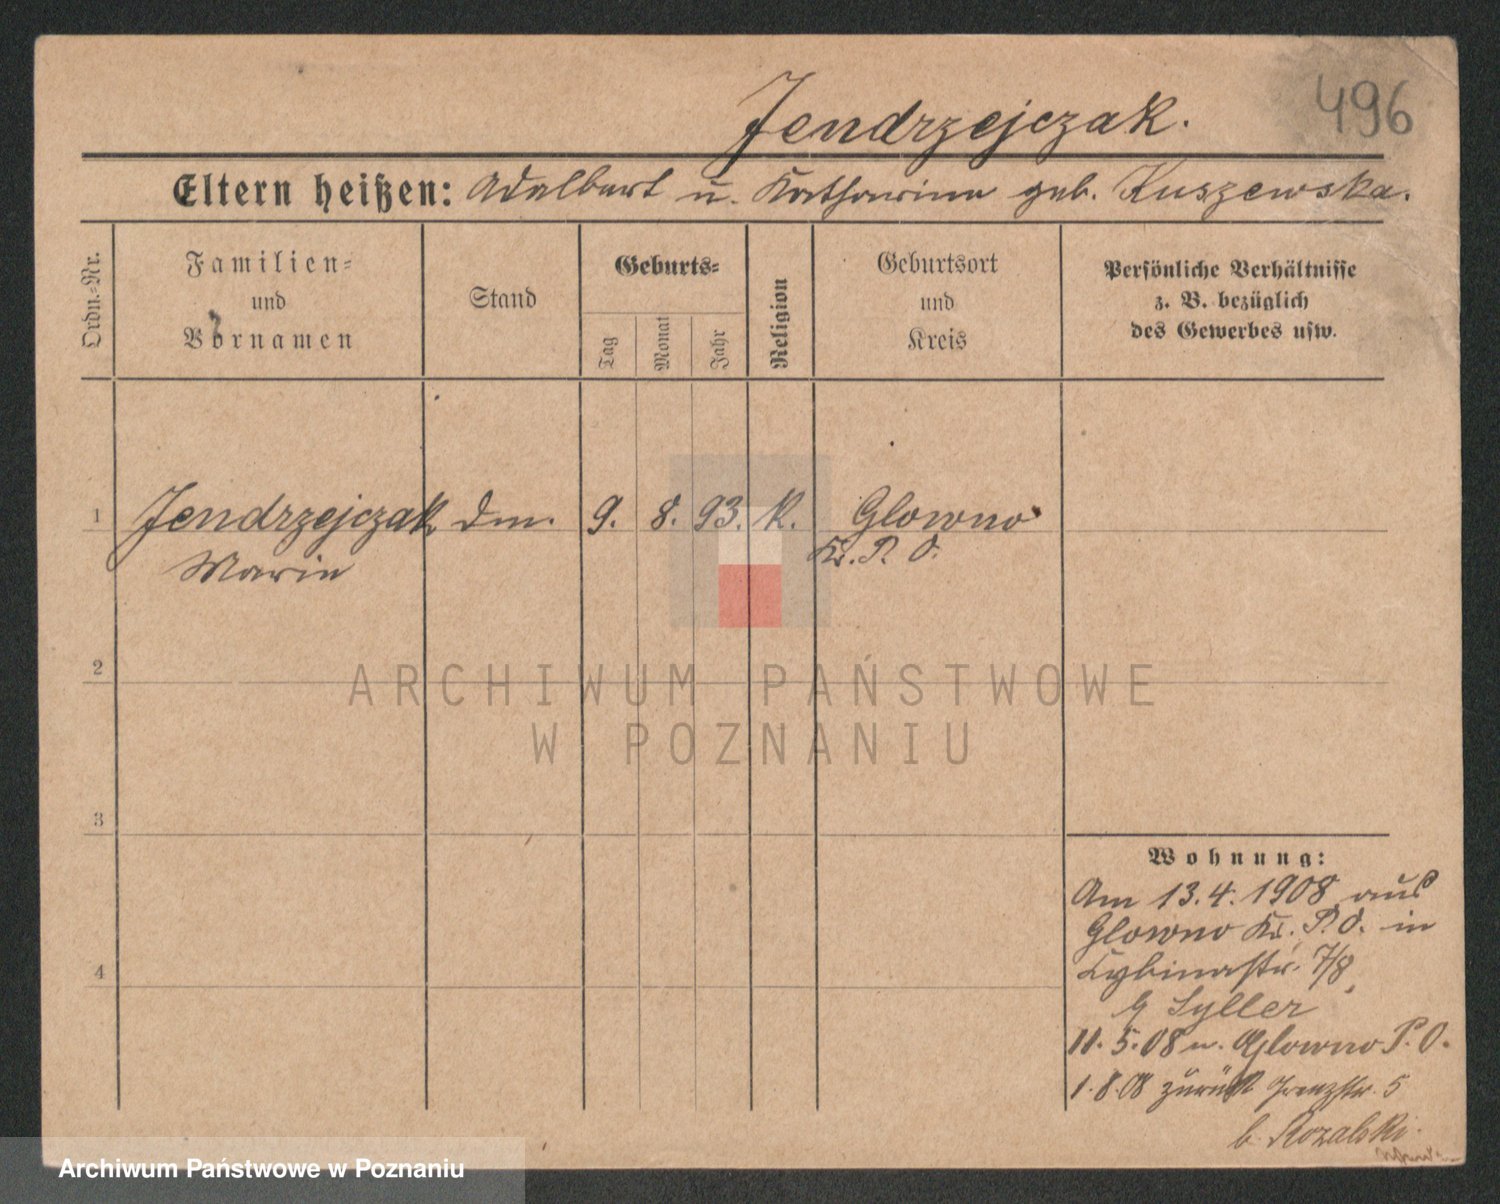 496
Jendrzejczak.
Eltern heißen: Adalbert u. Katharina geb. Kuszewska.
Ordn.-Nr.
Familien-
und
Vornamen
Stand
Geburts-
Tag
Monat
Jahr
Religion
Geburtsort
und
Kreis
Persönliche Verhältnisse
z. B. bezüglich
des Gewerbes usw.
1 Jendrzejczak 9. 8. 93. K. Glowno
Marie Kr. P. O.
2
ARCHIWUM PAŃSTWOWE
W POZNANIU
3
4
Wohnung:
Am 13.4.1908 aus
Glowno Kr. P. O. in
Cybinastr. 7/8
Syller
11.5.08 n. Glowno P. O.
1.8.08 zurück 5
b. Rozalski
Archiwum Państwowe w Poznaniu